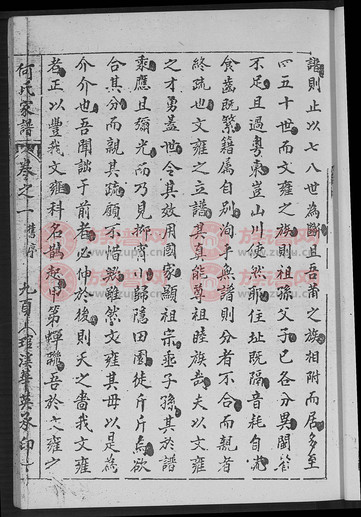 譜則止以七八世為斷且吾莆之族相附而居多至
四五十世而文雍之族則祖孫父子已各分異閩
不足且過粵東豈山川使然所住址既隔音耗自
食齒既繁籍屬自別洵乎無譜則分者不合而親者
終疏也文雍之立譜其真能尊祖睦族哉夫以文雍
之才勇蓋世令其效用國家顯祖宗垂子孫其於譜
乘應且彌光而乃見抑寄小歸隱田園徒斤斤焉欲
合其分而親其疏顧不惜歟雖然文雍其毋以是為
介介也吾聞詘于前者必伸於後則天之嗇我文雍
者正以豐我文雍科名鵲起甲第蟬聯吾於文雍之
何氏家譜 卷之一 舊序 九頁